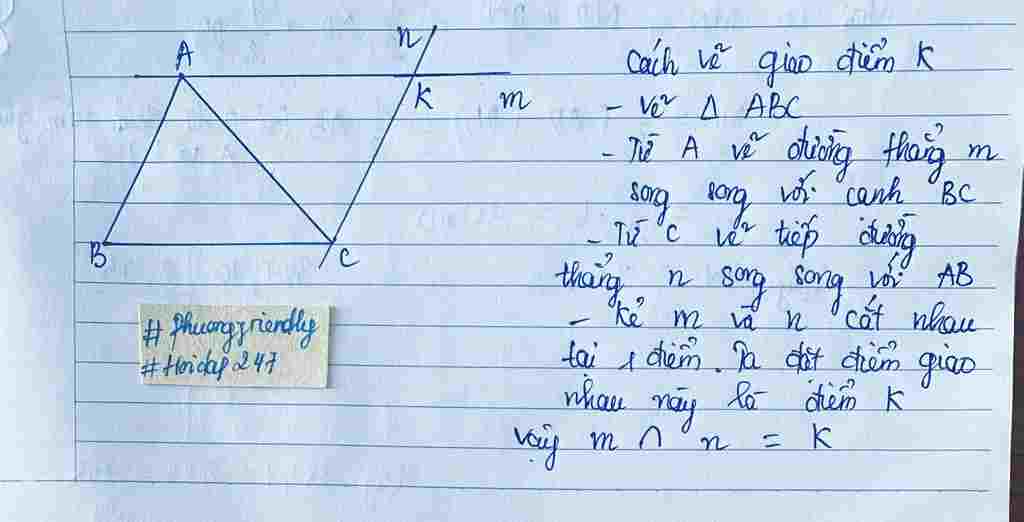 A
n
K
m
B
C
#phuongfriendly
#Hoidap247
Cách vẽ giao điểm K
- vẽ Δ ABC
- Từ A vẽ đường thẳng m
song song với cạnh BC
- Từ C vẽ tiếp đường
thẳng n song song với AB
- kẻ m và n cắt nhau
tại 1 điểm. Ta đặt điểm giao
nhau này là điểm K
Vậy m ∩ n = K